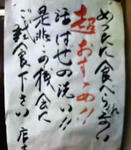 めったに食べられない
超おすすめ!!
活はぜの洗い!!
是非この機会に
ご賞食下さい 店主